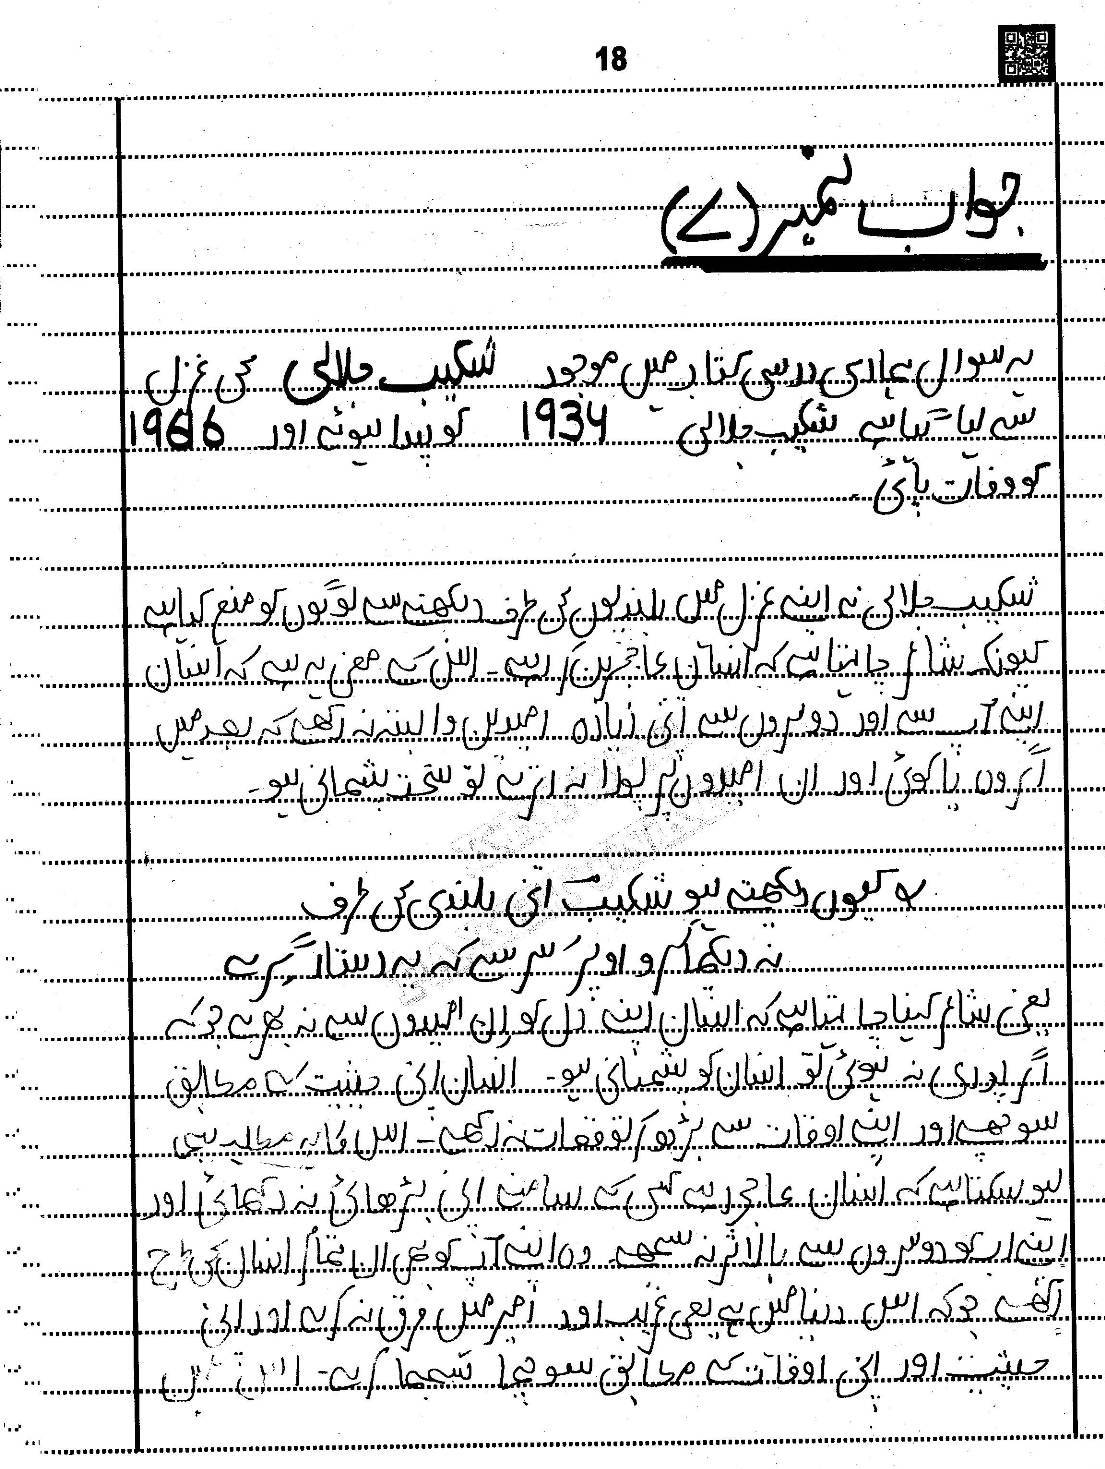 18
جواب نمبر (7)
یہ سوال ہماری درسی کتاب میں موجود شکیب جلالی کی غزل
سے لیا گیا ہے شکیب جلالی 1934 کو پیدا ہوئے اور 1966
کو وفات پائی۔
شکیب جلالی نہ اپنے غزل میں بلندیوں کی طرف دیکھنے سے لوگوں کو منع کیا ہے
کیونکہ شاعر چاہتا ہے کہ انسان عاجز بن کر رہے۔ اس کے معنی یہ ہے کہ انسان
اپنے آپ سے اور دوسروں سے اتنی زیادہ امیدیں وابستہ نہ رکھے کہ بعد میں
اگر وں یا کوئی اور ان امیدوں پر پورا نہ اترے تو سخت پشمانی ہو۔
کیوں دیکھتے ہو شکیب اتنی بلندی کی طرف
نہ دیکھا کرو اوپر سر سے کہ یہ دستار گرے
یعنی شاعر کہنا چاہتا ہے کہ انسان اپنے دل کو ان امیدوں سے نہ بھرے جو کہ
اگر پوری نہ ہوئی تو انسان کو پشمانی ہو۔ انسان اپنی حیثیت کے مطابق
سوچھے اور اپنے اوقات سے بڑھ کر توقعات نہ رکھے۔ اس کا یہ مطلب بھی
ہو سکتا ہے کہ انسان عاجز رہے کسی کے سامنے اپنی بڑھائی نہ دکھائی اور
اپنے اپ کو دوسروں سے بالاتر نہ سمجھے۔ وہ اپنے آپ کو بھی ان تمام انسان کی طرح
رکھے جو کہ اس دنیا میں ہے یعنی غریب اور امیر میں فرق نہ کرے اور اپنی
حیثیت اور اپنی اوقات کے مطابق سوچا سمجھا کرے۔ اس میں